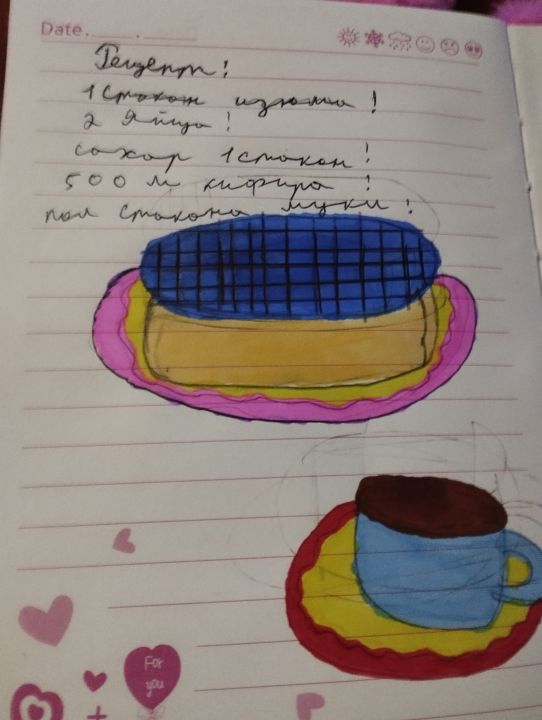 Date
Рецепт!
1 стакан изюма!
2 Яйца!
сахар 1 стакан!
500 м кифира!
пол стакана муки!
For
you